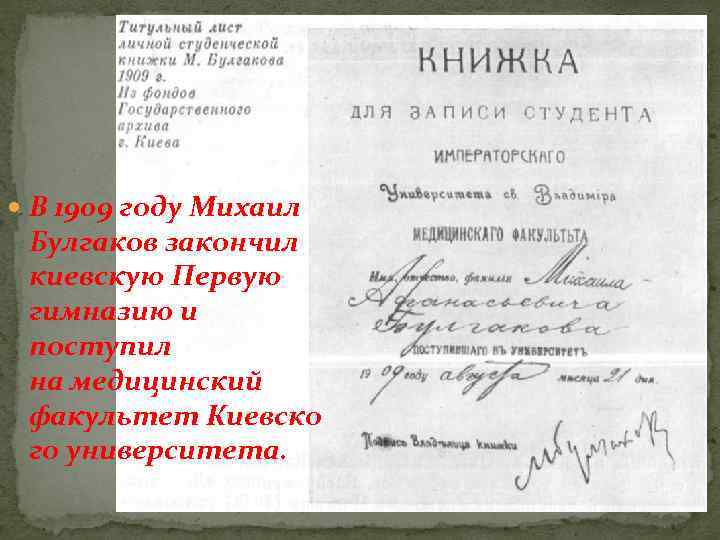 Титульный лист
личной студенческой
книжки М. Булгакова
1909 г.
Из фондов
Государственного
архива
г. Киева
В 1909 году Михаил
Булгаков закончил
киевскую Первую
гимназию и
поступил
на медицинский
факультет Киевско
го университета.
КНИЖКА
ДЛЯ ЗАПИСИ СТУДЕНТА
ИМПЕРАТОРСКАГО
Университета св. Владиміра
МЕДИЦИНСКАГО ФАКУЛЬТЬТА
Имя, отчество, фамилія Михаила
Афанасьевича
Булгакова
ПОСТУПИВШАГО ВЪ УНИВЕРСИТЕТЪ
1909 году августа мѣсяца 21 дня.
Подпись Владѣльца книжки МБулгаковъ